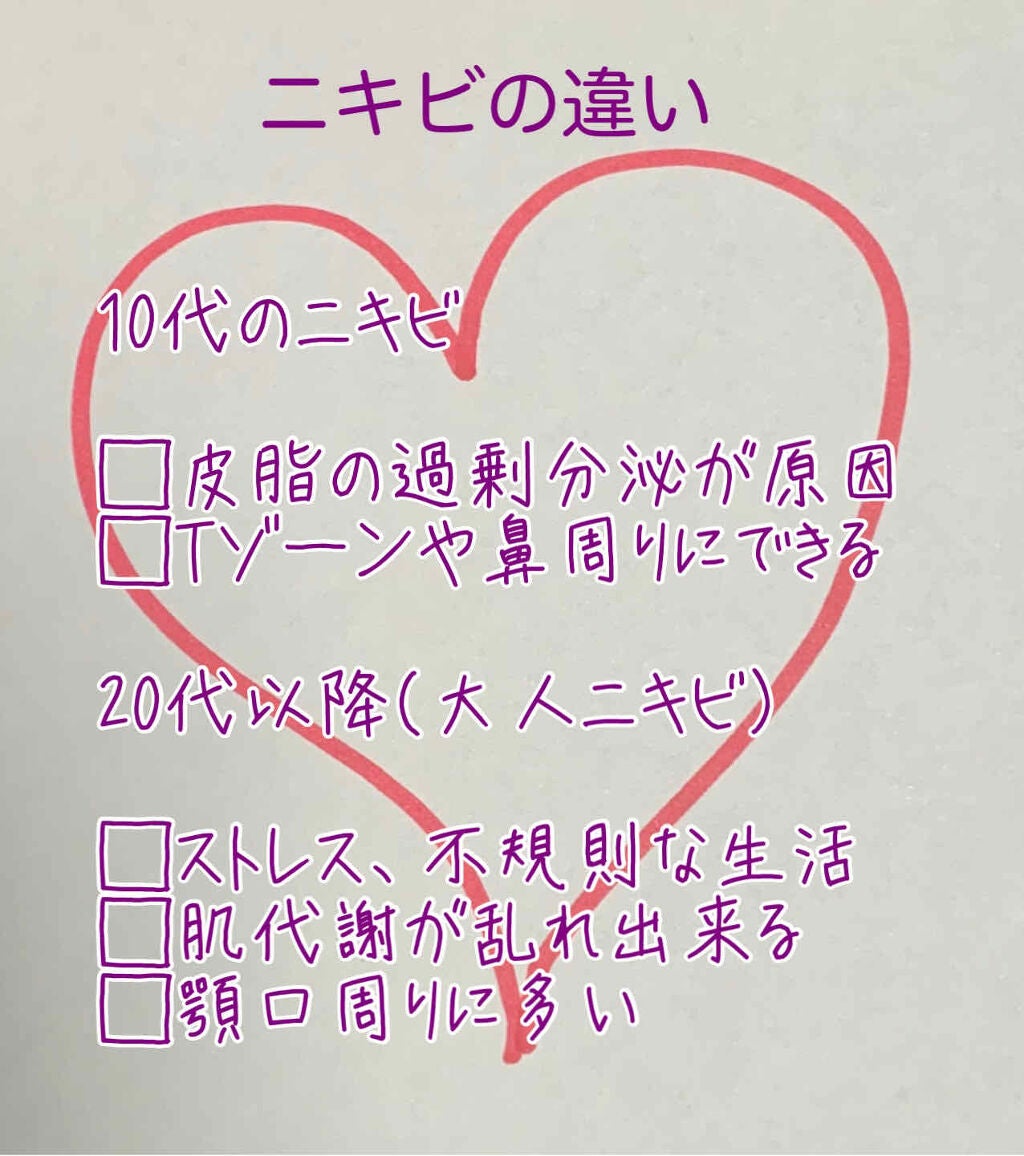 ニキビの違い
10代のニキビ
□皮脂の過剰分泌が原因
□Tゾーンや鼻周りにできる
20代以降(大人ニキビ)
□ストレス、不規則な生活
□肌代謝が乱れ出来る
□顎口周りに多い